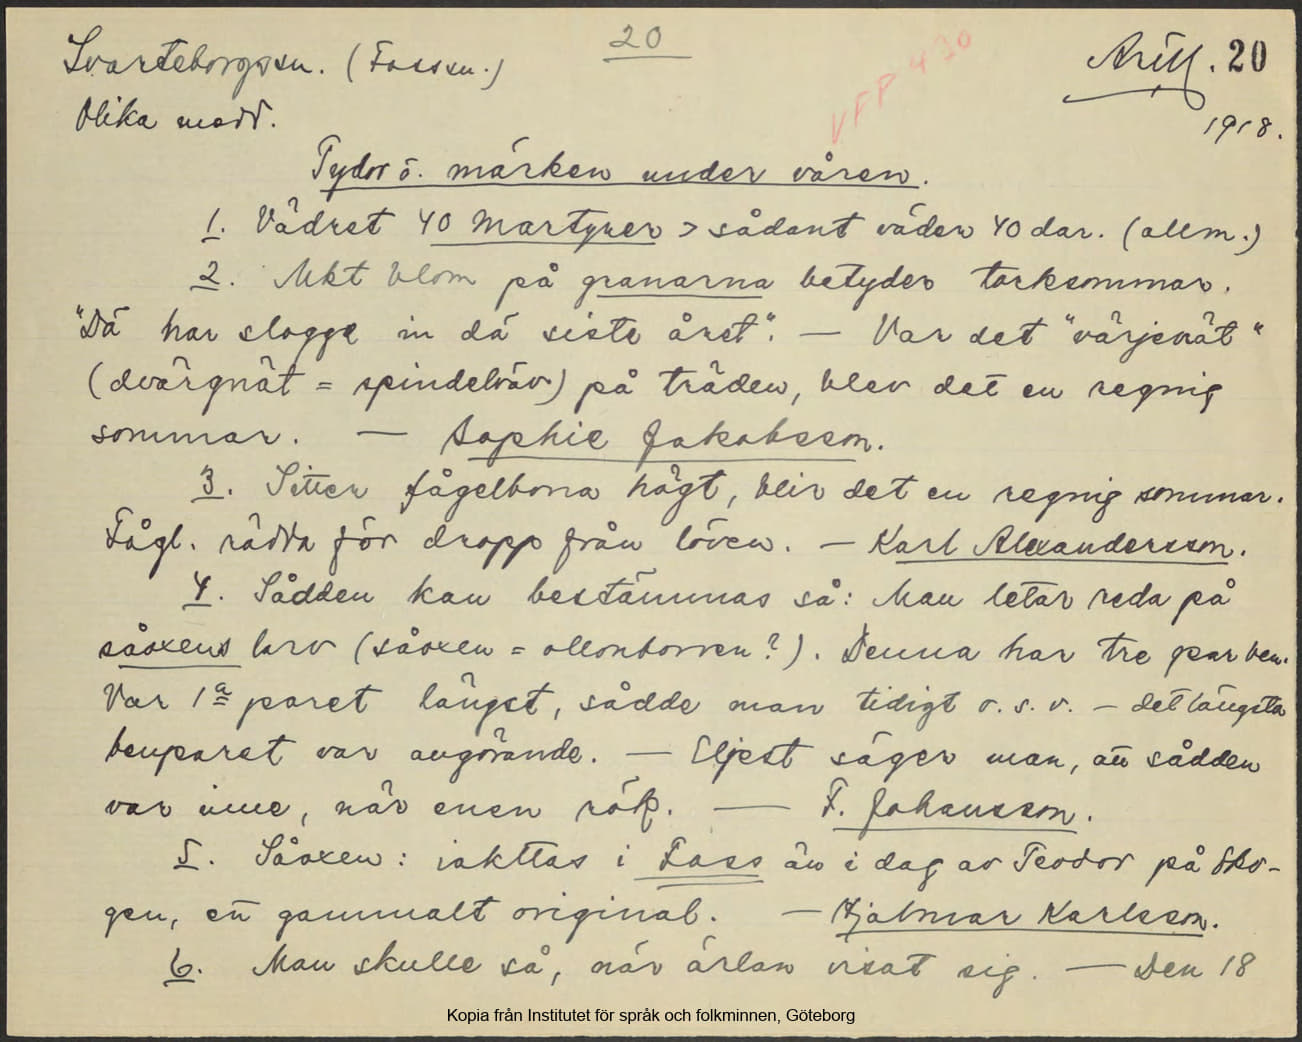 20
Svarteborgssn. (Fosssn.)
VFP 430
Artll. 20
Olika medd.
1918.
Tydor o. märken under våren.
1. Vädret 40 Martyrer > sådant väder 40 dar. (allm.)
2. Mkt blom på granarna betyder torksommar.
"Dä har slogge in dä siste året". — Var det "värjenät"
(dvärgnät = spindelväv) på träden, blev det en regnig
sommar. — Sophie Jakobsson.
3. Sitter fågelbona högt, blir det en regnig sommar.
Fågl. rädda för dropp från löven. — Karl Alexandersson.
4. Sådden kan bestämmas så: Man letar reda på
såoxens larv (såoxen = ollonborren?). Denna har tre par ben.
Var 1a paret längst, sådde man tidigt o.s.v. — det längsta
benparet var avgörande. — Eljest säger man, att sådden
var inne, när enen rök. — F. Johansson.
5. Såoxen: iakttas i Foss än i dag av Teodor på Sko-
gen, ett gammalt original. — Hjalmar Karlsson.
6. Man skulle så, när ärlan visat sig. — Den 18
Kopia från Institutet för språk och folkminnen, Göteborg